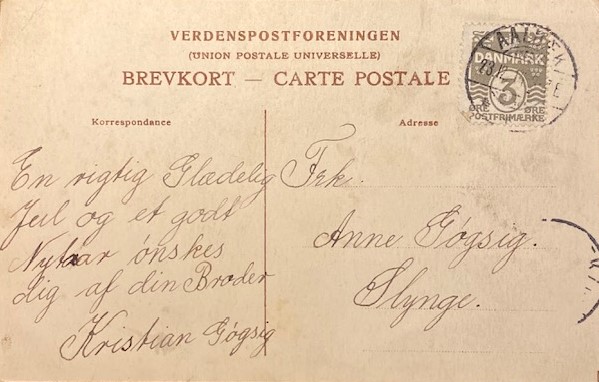 VERDENSPOSTFORENINGEN
(UNION POSTALE UNIVERSELLE)
BREVKORT — CARTE POSTALE
DANMARK
3
ØRE ØRE
POSTFRIMÆRKE
Korrespondance
Adresse
En rigtig Glædelig
Jul og et godt
Nytaar ønskes
dig af din Broder
Kristian Gøgsig
Frk.
Anne Gøgsig.
Slynge.